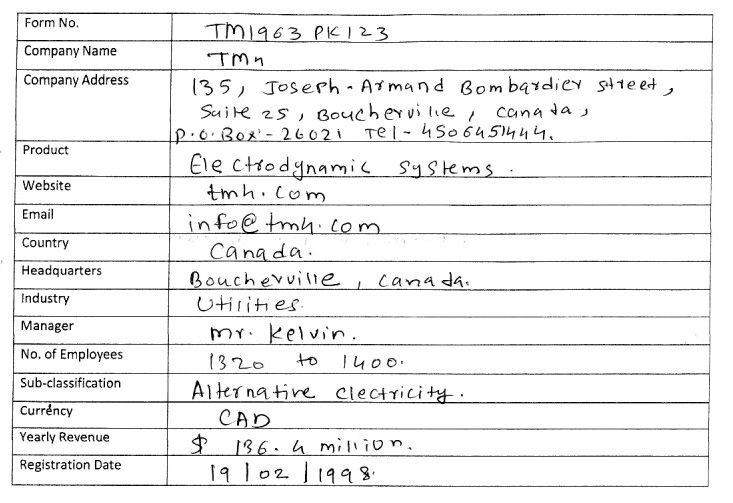 Form No. TM1963 PK123
Company Name TMH
Company Address 135, Joseph-Armand Bombardier street,
Suite 25, Boucherville, Canada,
P.O.Box - 26021 Tel - 4506451444.
Product Electrodynamic systems.
Website tmh.com
Email info@tmh.com
Country Canada.
Headquarters Boucherville, Canada.
Industry Utilities.
Manager Mr. Kelvin.
No. of Employees 1320 to 1400.
Sub-classification Alternative electricity.
Currency CAD
Yearly Revenue $ 136.4 million.
Registration Date 19/02/1998.